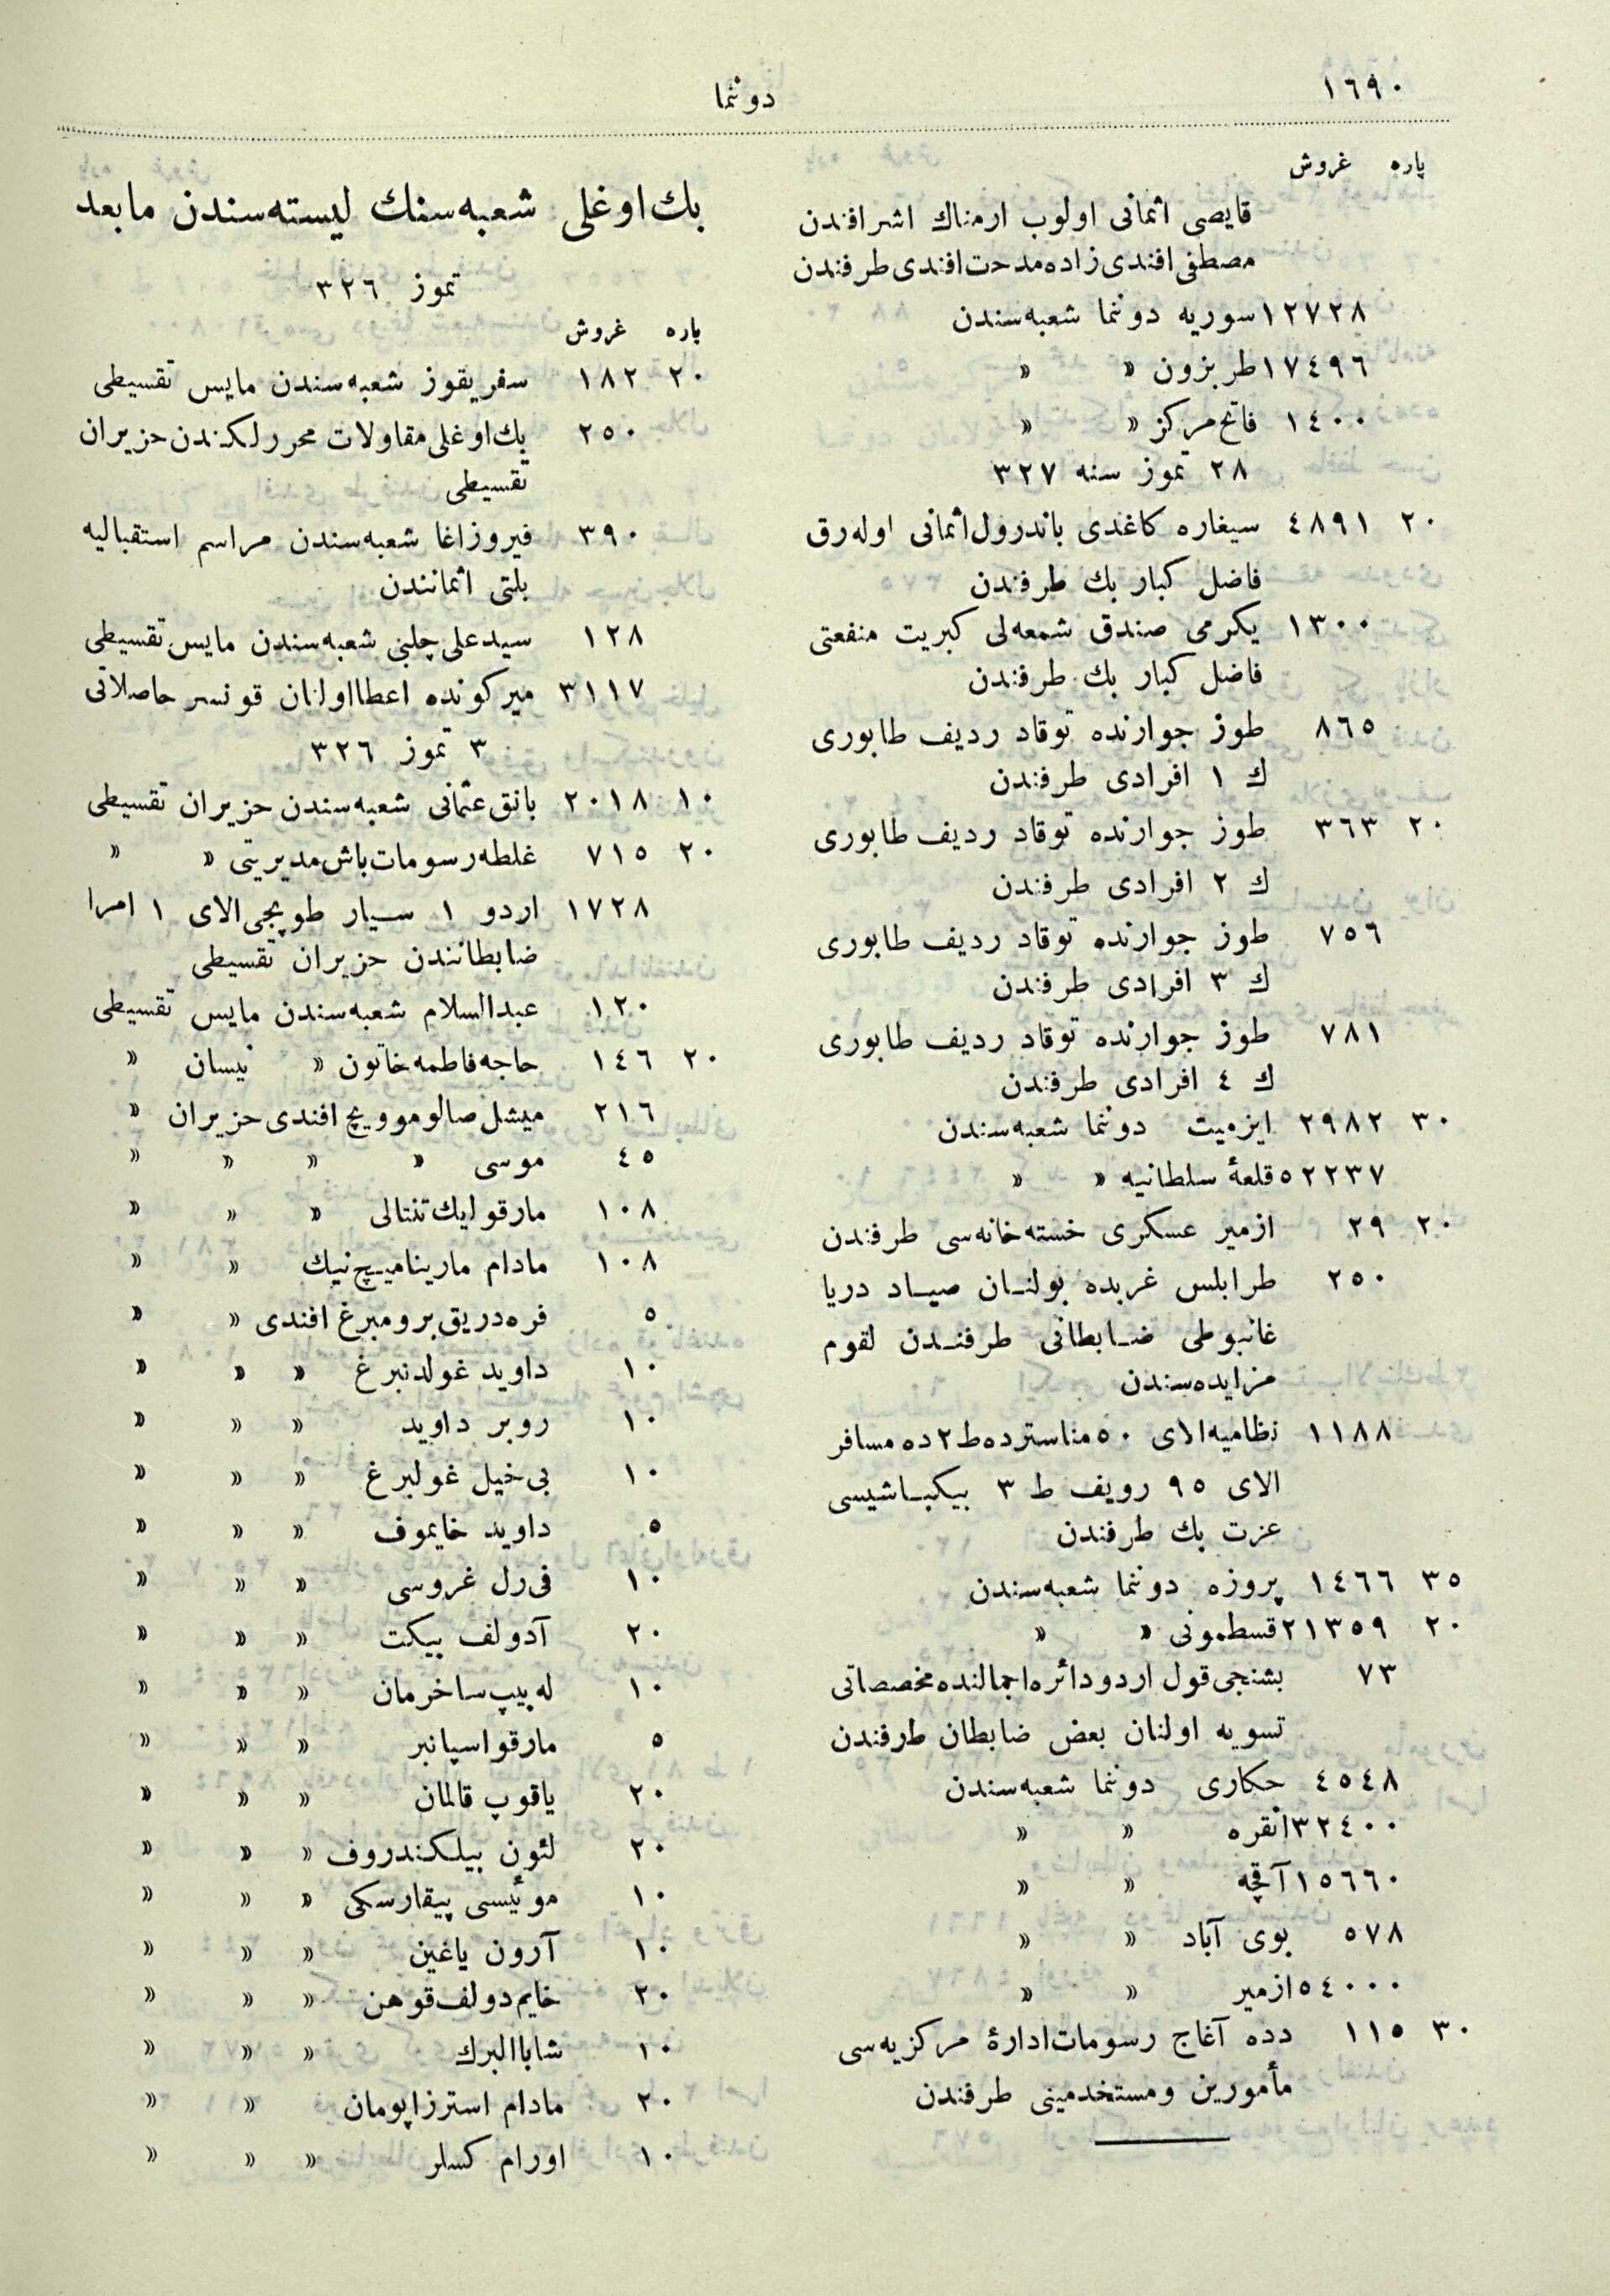 ١٦٩٠
دوننما
پاره غروش
قایصی اثمانی اولوب ارمناك اشرافندن
مصطفی افندی زاده مدحت افندی طرفندن
١٢٧٢٨ سوریه دوننما شعبه سندن
١٧٤٩٦ طربزون « «
١٤٠٠ فاتح مركز « «
٢٨ تموز سنه ٣٢٧
٢٠ ٤٨٩١ سیغاره كاغدی باندرول اثمانی اوله رق
فاضل كبار بك طرفندن
١٣٠٠ یكرمی صندق شمعه لی كبریت منفعتی
فاضل كبار بك طرفندن
٨٦٥ طوز جوارنده توقاد ردیف طابوری
ك ١ افرادی طرفندن
٢٠ ٣٦٣ طوز جوارنده توقاد ردیف طابوری
ك ٢ افرادی طرفندن
٧٥٦ طوز جوارنده توقاد ردیف طابوری
ك ٣ افرادی طرفندن
٧٨١ طوز جوارنده توقاد ردیف طابوری
ك ٤ افرادی طرفندن
٣٠ ٢٩٨٢ ایزمیت دوننما شعبه سندن
٥٢٢٣٧ قلعۀ سلطانیه « «
٢٠ ٢٩ ازمیر عسكری خسته خانه سی طرفندن
٢٥٠ طرابلس غربده بولنان صیاد دریا
غانبوطی ضابطانی طرفندن لقوم
مزایده سندن
١١٨٨ نظامیه الای ٥٠ مناسترده ط ٢ ده مسافر
الای ٩٥ رویف ط ٣ بیكباشیسی
عزت بك طرفندن
٣٥ ١٤٦٦ پروزه دوننما شعبه سندن
٢٠ ٢١٣٥٩ قسطمونی « «
٧٣ بشنجی قول اردو دائره اجمالنده مخصصاتی
تسویه اولنان بعض ضابطان طرفندن
٤٥٤٨ حكاری دوننما شعبه سندن
٣٢٤٠٠ انقره « «
١٥٦٦٠ آقچه « «
٥٧٨ بوی آباد « «
٥٤٠٠٠ ازمیر « «
٣٠ ١١٥ دده آغاج رسومات ادارۀ مركزیه سی
مأمورین ومستخدمینی طرفندن
بك اوغلی شعبه سنك لیسته سندن مابعد
تموز ٣٢٦
پاره غروش
٢٠ ١٨٢ سفریقوز شعبه سندن مایس تقسیطی
٢٥٠ بك اوغلی مقاولات محررلكندن حزیران
تقسیطی
٣٩٠ فیروزاغا شعبه سندن مراسم استقبالیه
بلتی اثمانندن
١٢٨ سید علی چلبی شعبه سندن مایس تقسیطی
٣١١٧ میركونده اعطا اولنان قونسر حاصلاتی
٣ تموز ٣٢٦
١٠ ٢٠١٨ بانق عثمانی شعبه سندن حزیران تقسیطی
٢٠ ٧١٥ غلطه رسومات باش مدیریتی « «
١٧٢٨ اردو ١ سیار طوپجی الای ١ امرا
ضابطانندن حزیران تقسیطی
١٢٠ عبدالسلام شعبه سندن مایس تقسیطی
٢٠ ١٤٦ حاجه فاطمه خاتون « نیسان «
٢١٦ میشل صالوموویچ افندی حزیران «
٤٥ موسی « « « «
١٠٨ مارقو ایك تنتالی « « «
١٠٨ مادام مارینامیچ نیك « «
٥ فره دریق برومبرغ افندی « «
١٠ داوید غولدنبرغ « « «
١٠ روبر داوید « « «
١٠ بی خیل غولبرغ « « «
٥ داوید خایموف « « «
١٠ فی رل غروسی « « «
٢٠ آدولف بیكت « « «
١٠ له بیپ ساخرمان « « «
٥ مارقو اسپانبر « « «
٢٠ یاقوب قالمان « « «
٢٠ لئون بیلكندروف « « «
١٠ موئیسی پیقارسكی « « «
١٠ آرون یاغین « « «
٢٠ خایم دولف قوهن « « «
١٠ شابا البرك « « «
٢٠ مادام استرزاپومان « «
١٠ اورام كسلر « « «